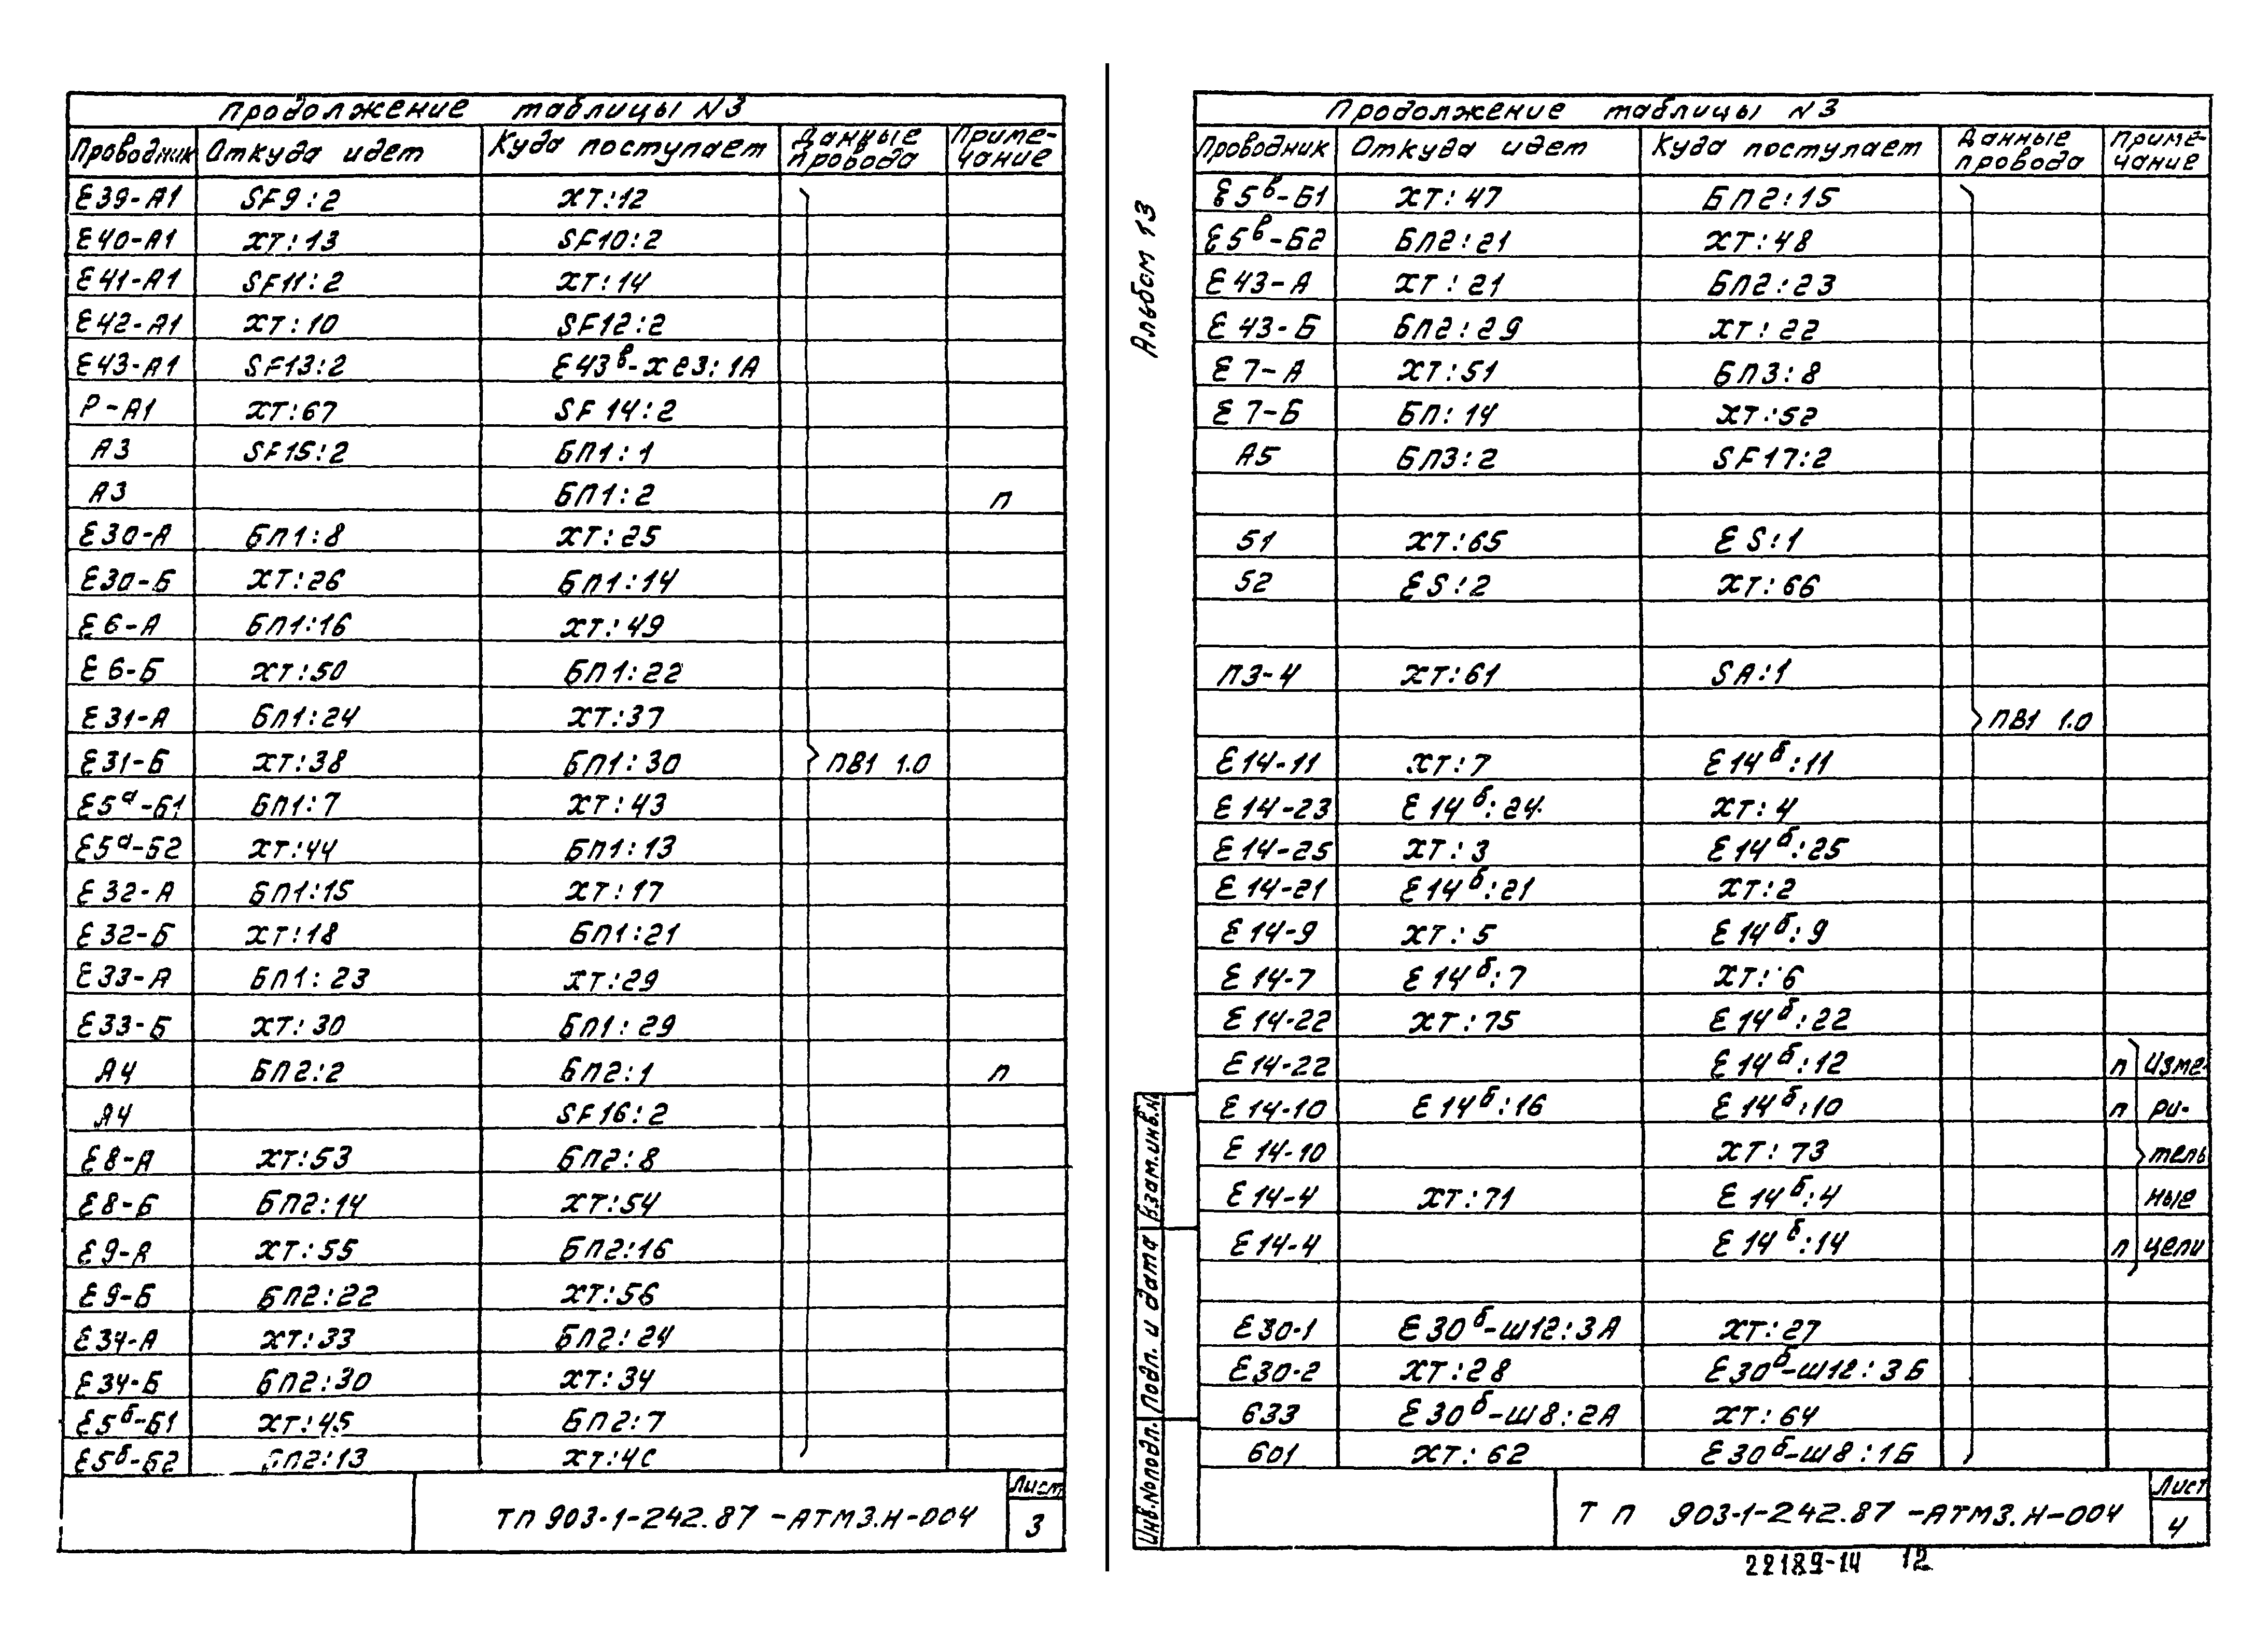 Продолжение таблицы N3
Проводник Откуда идет Куда поступает Данные провода Примечание
Е39-А1 SF9:2 ХТ:12
Е40-А1 ХТ:13 SF10:2
Е41-А1 SF11:2 ХТ:14
Е42-А1 ХТ:10 SF12:2
Е43-А1 SF13:2 Е43в-Х23:1А
Р-А1 ХТ:67 SF14:2
А3 SF15:2 БП1:1
А3 БП1:2 п
Е30-А БП1:8 ХТ:25
Е30-Б ХТ:26 БП1:14
Е6-А БП1:16 ХТ:49
Е6-Б ХТ:50 БП1:22
Е31-А БП1:24 ХТ:37
Е31-Б ХТ:38 БП1:30 ПВ1 1.0
Е5а-Б1 БП1:7 ХТ:43
Е5а-Б2 ХТ:44 БП1:13
Е32-А БП1:15 ХТ:17
Е32-Б ХТ:18 БП1:21
Е33-А БП1:23 ХТ:29
Е33-Б ХТ:30 БП1:29
А4 БП2:2 БП2:1 п
А4 SF16:2
Е8-А ХТ:53 БП2:8
Е8-Б БП2:14 ХТ:54
Е9-А ХТ:55 БП2:16
Е9-Б БП2:22 ХТ:56
Е34-А ХТ:33 БП2:24
Е34-Б БП2:30 ХТ:34
Е5б-Б1 ХТ:45 БП2:7
Е5б-Б2 БП2:13
ТП 903-1-242.87 -АТМ3.Н-004
Лист
3
Альбом 13
Продолжение таблицы N3
Проводник Откуда идет Куда поступает Данные провода Примечание
Е5в-Б1 ХТ:47 БП2:15
Е5в-Б2 БП2:21 ХТ:48
Е43-А ХТ:21 БП2:23
Е43-Б БП2:29 ХТ:22
Е7-А ХТ:51 БП3:8
Е7-Б БП:14 ХТ:52
А5 БП3:2 SF17:2
51 ХТ:65 ES:1
52 ES:2 ХТ:66
П3-4 ХТ:61 SA:1
ПВ1 1.0
Е14-11 ХТ:7 Е14б:11
Е14-23 Е14б:24 ХТ:4
Е14-25 ХТ:3 Е14б:25
Е14-21 Е14б:21 ХТ:2
Е14-9 ХТ:5 Е14б:9
Е14-7 Е14б:7 ХТ:6
Е14-22 ХТ:75 Е14б:22
Е14-22 Е14б:12 п Изме-
Е14-10 Е14б:16 Е14б:10 п ри-
Е14-10 ХТ:73 тель
Е14-4 ХТ:71 Е14б:4 ные
Е14-4 Е14б:14 п цепи
Е30-1 Е30б-Ш12:3А ХТ:27
Е30-2 ХТ:28 Е30б-Ш12:3Б
633 Е30б-Ш8:2А ХТ:64
601 ХТ:62 Е30б-Ш8:1Б
Инв.№подл. Подп. и дата Взам.инв.№
ТП 903-1-242.87 -АТМ3.Н-004
Лист
4
22189-14 12